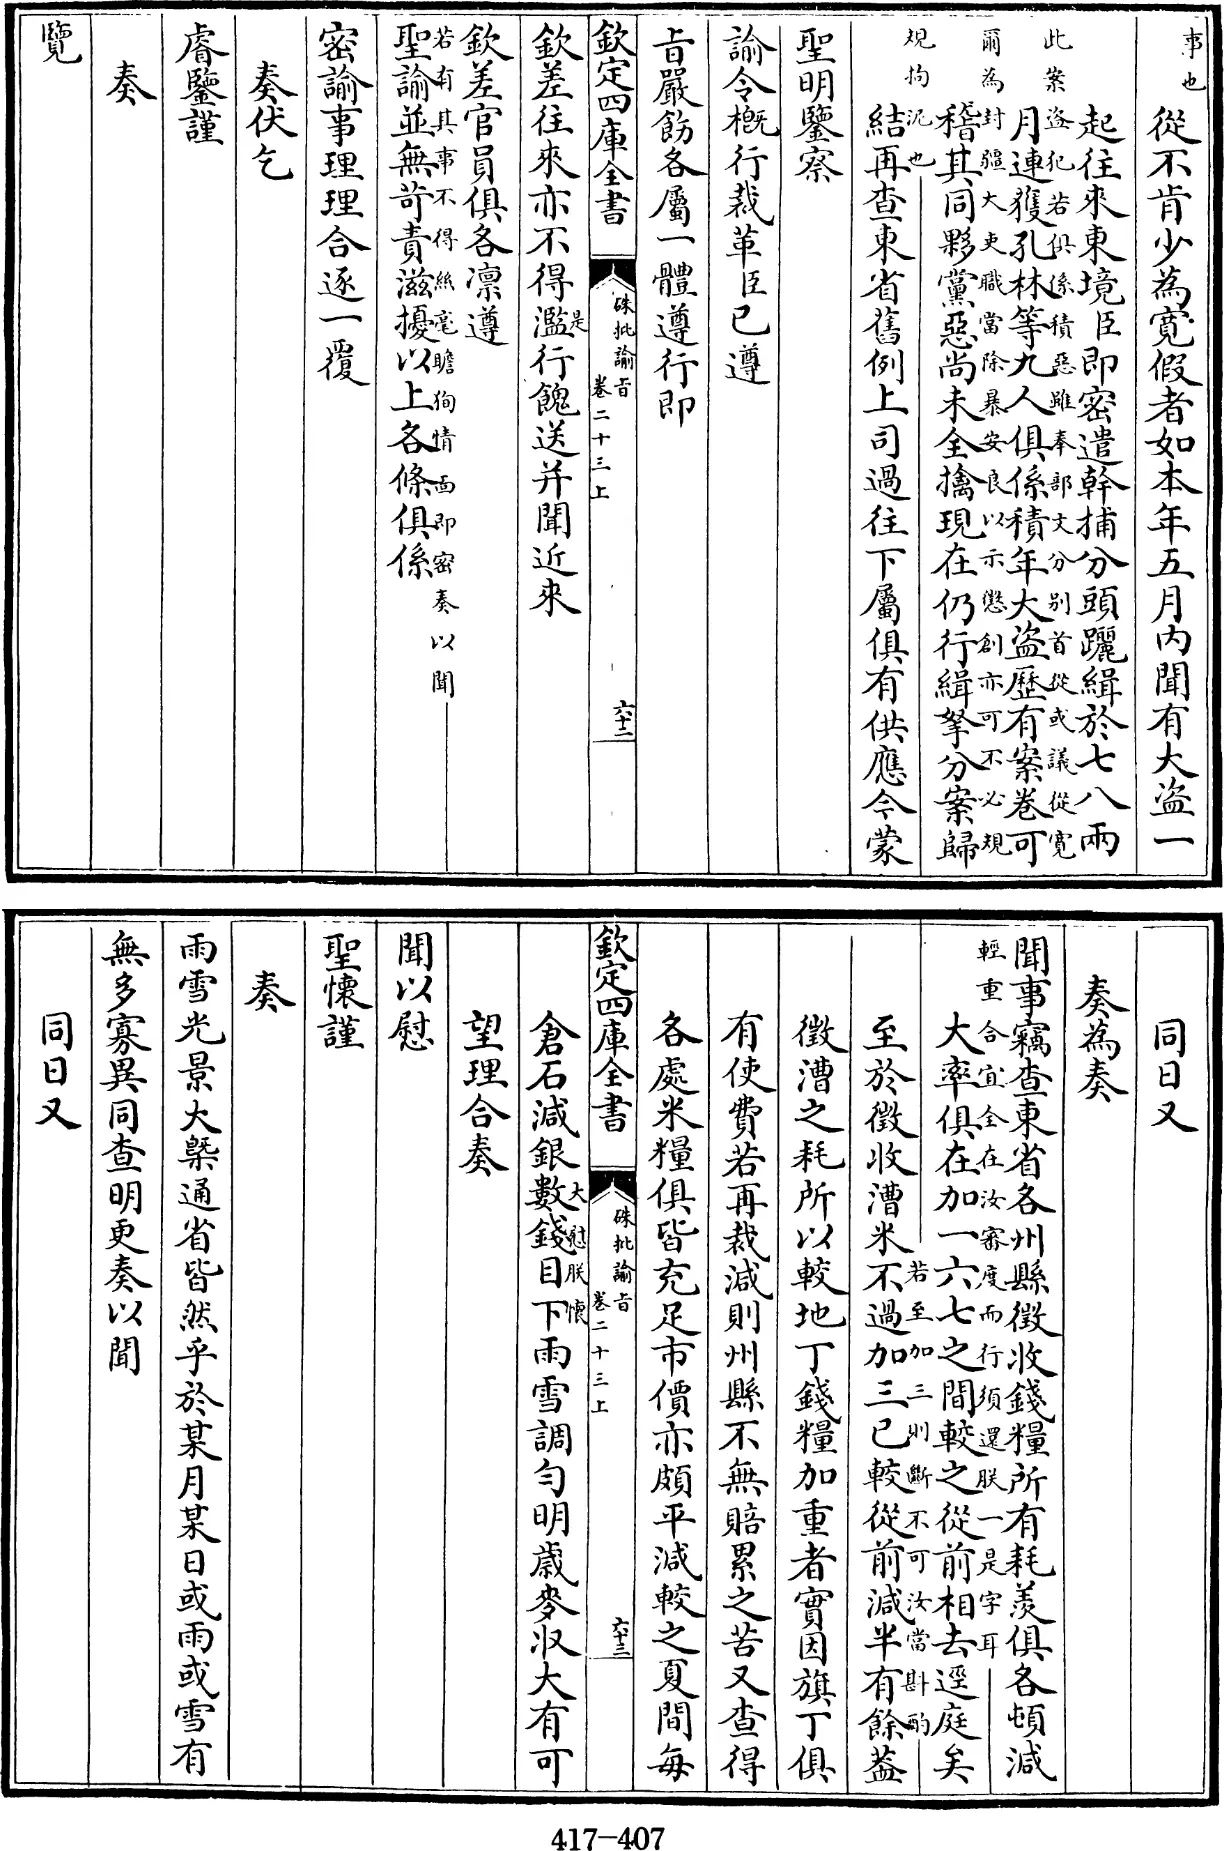 事也
從不肯少為寛假者如本年五月内聞有大盜一
起往來東境臣即密遣幹捕分頭躧緝於七八兩
此案盜犯若俱係積惡雖奉部文分别首從或議從寛
月連獲孔林等九人俱係積年大盜歷有案卷可
爾為封疆大吏職當除暴安良以示懲創亦可不必規
稽其同夥黨惡尚未全擒現在仍行緝拏分案歸
規拘泥也
結再查東省舊例上司過往下屬俱有供應今蒙
聖明鑒察
諭令概行裁革臣已遵
旨嚴飭各屬一體遵行即
欽定四庫全書
硃批諭旨
卷二十三上
六十二
欽差往來亦不得濫行餽送并聞近來
是
欽差官員俱各凛遵
若有其事不得絲毫瞻狥情面即密奏以聞
聖諭並無苛責滋擾以上各條俱係
密諭事理理合逐一覆
奏伏乞
睿鑒謹
奏
覽
同日又
奏為奏
聞事竊查東省各州縣徴收錢糧所有耗羨俱各頓減
輕重合宜全在汝審度而行須還朕一是字耳
大率俱在加一六七之間較之從前相去逕庭矣
若至加三則斷不可汝當斟酌
至於徴收漕米不過加三已較從前減半有餘葢
徴漕之耗所以較地丁錢糧加重者實因旗丁俱
有使費若再裁減則州縣不無賠累之苦又查得
各處米糧俱皆充足市價亦頗平減較之夏間每
欽定四庫全書
硃批諭旨
卷二十三上
六十三
大慰朕懷
倉石減銀數錢目下雨雪調勻明歲麥收大有可
望理合奏
聞以慰
聖懷謹
奏
雨雪光景大槩通省皆然乎於某月某日或雨或雪有
無多寡異同查明更奏以聞
同日又
417-407